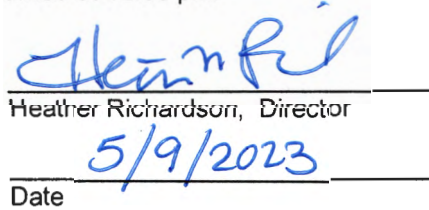 Heather Richardson, Director
5/9/2023
Date